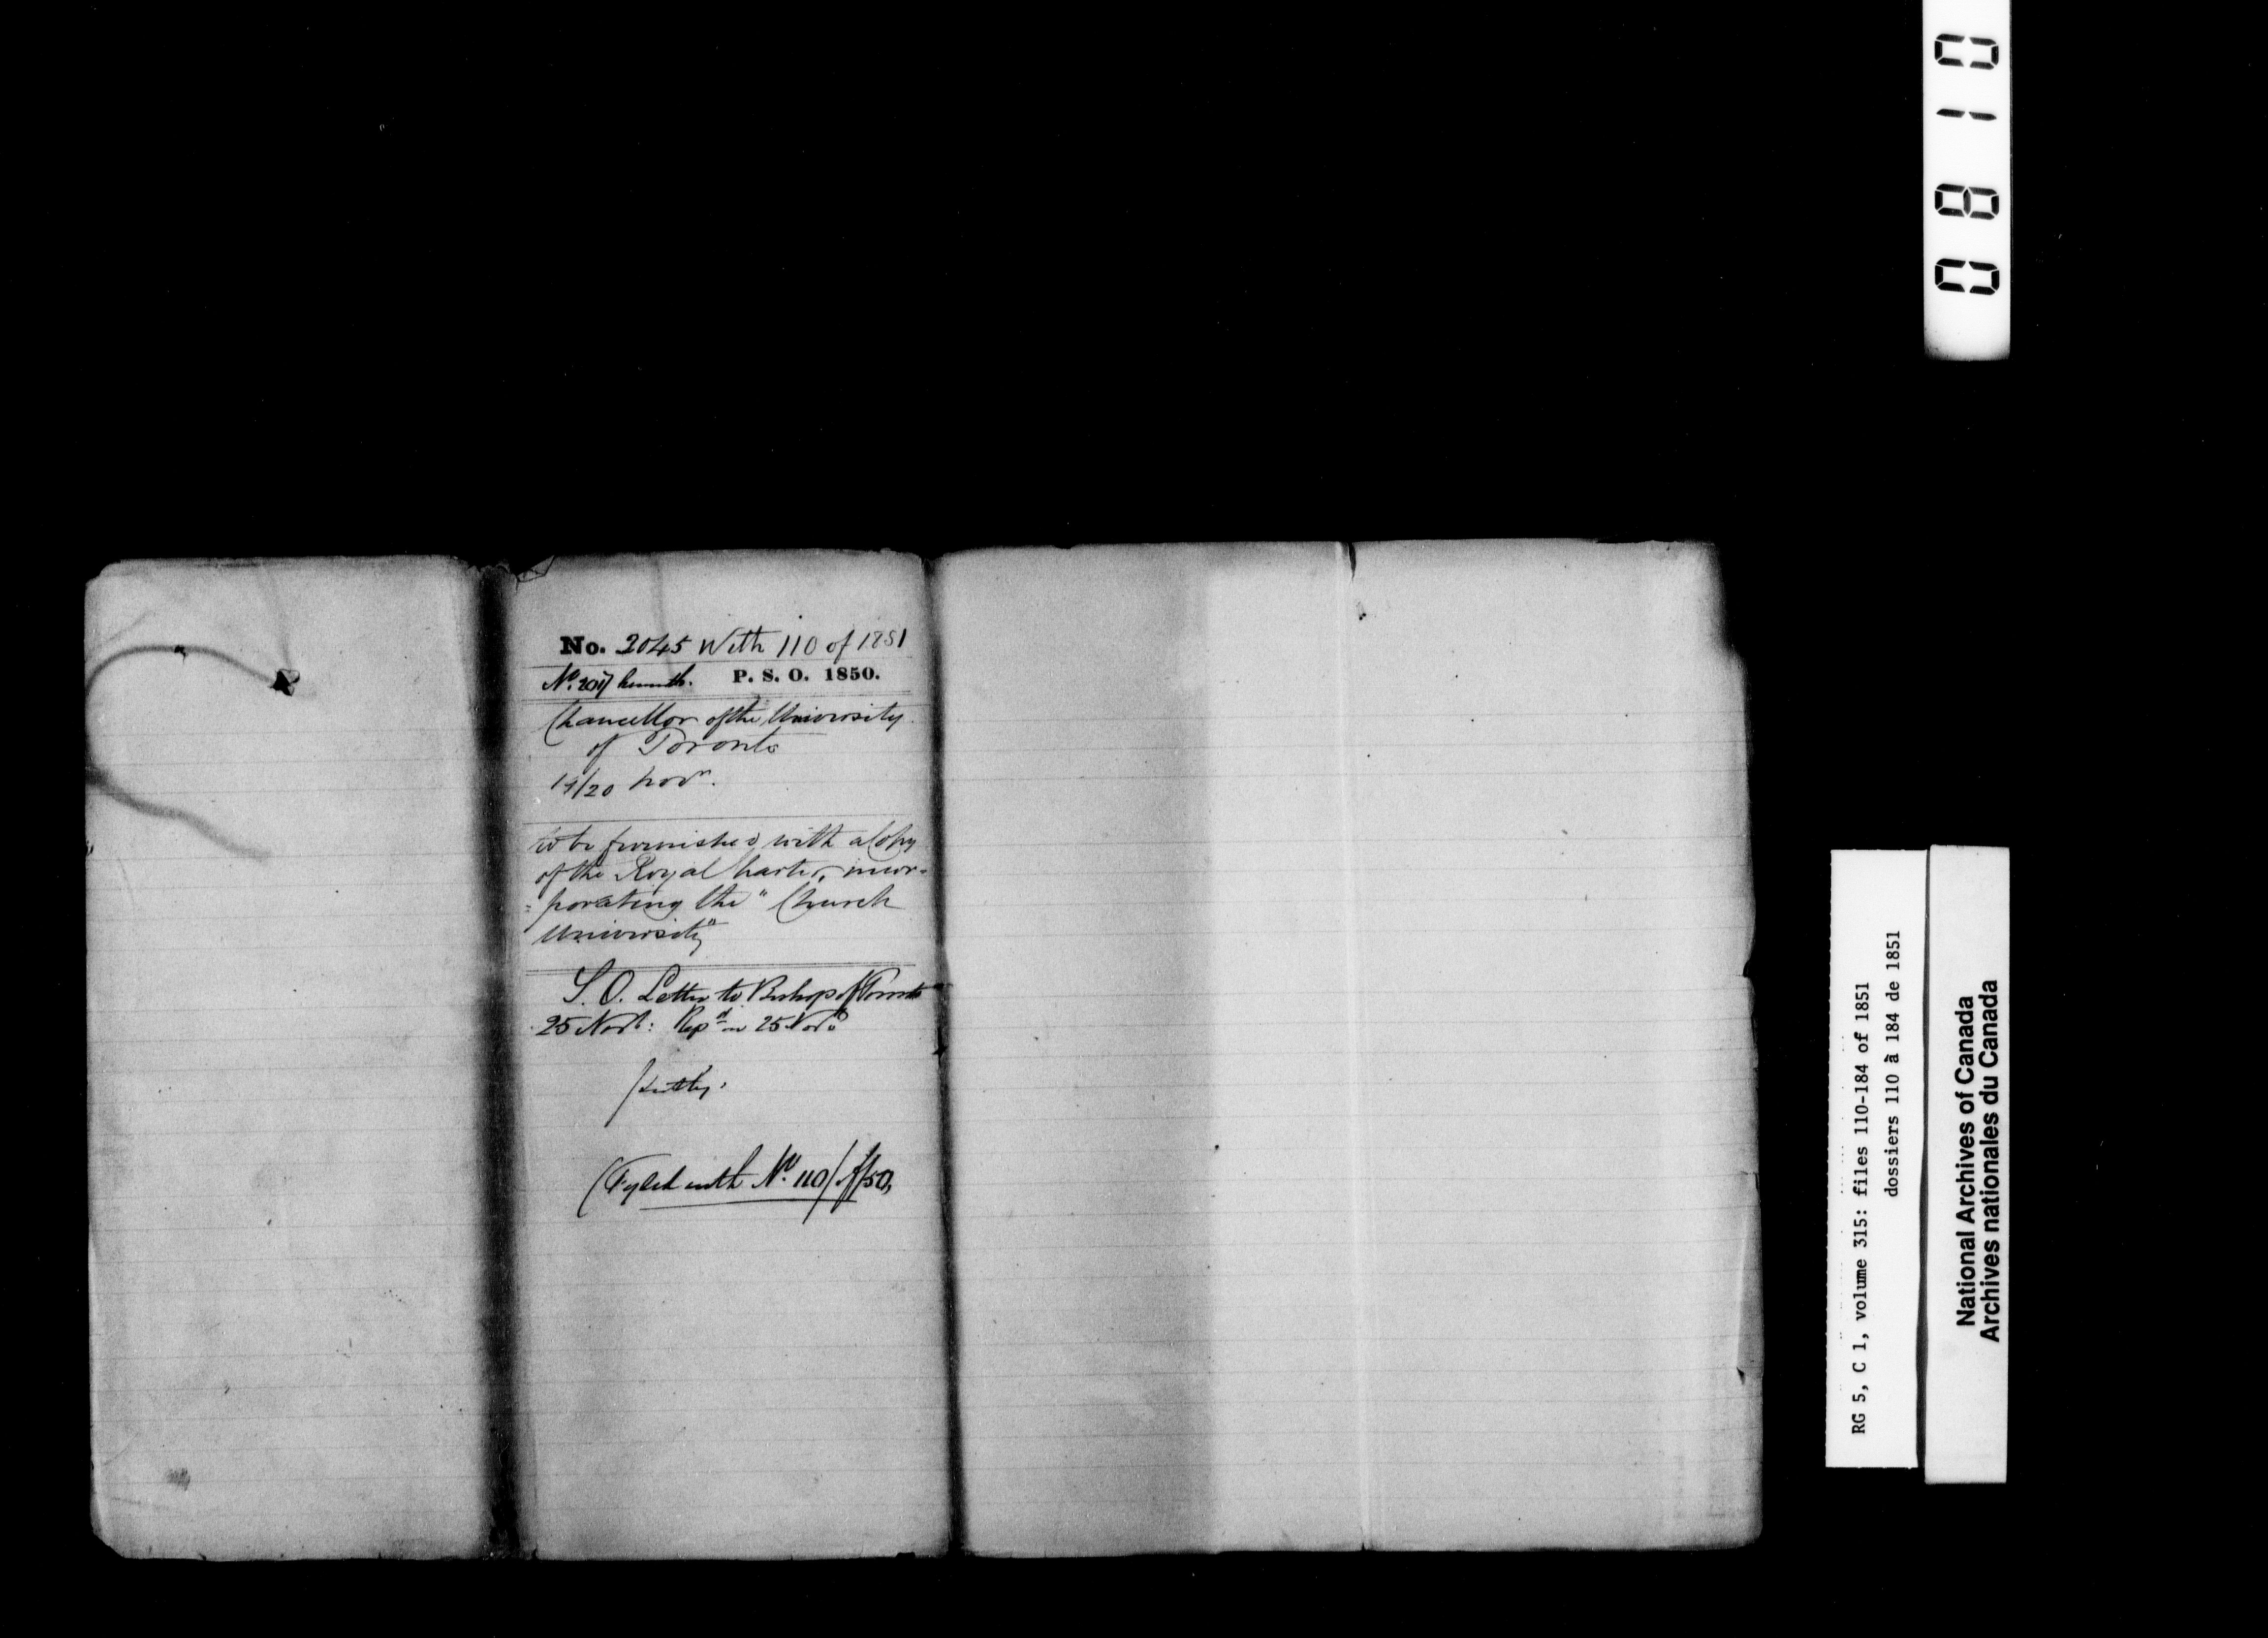 No. 2045 With 110 of 1851
No. 2017 herewith. P. S. O. 1850.
Chancellor of the University
of Toronto
19/20 Novr.
to be furnished with a Copy
of the Royal Charter, incor-
=porating the "Church
University"
S. O. Letter to Bishop of Toronto
25 Novr: Repd on 25 Novr
(Fyled with No. 110/ of/50,
0810
RG 5, C 1, volume 315: files 110-184 of 1851
dossiers 110 à 184 de 1851
National Archives of Canada
Archives nationales du Canada